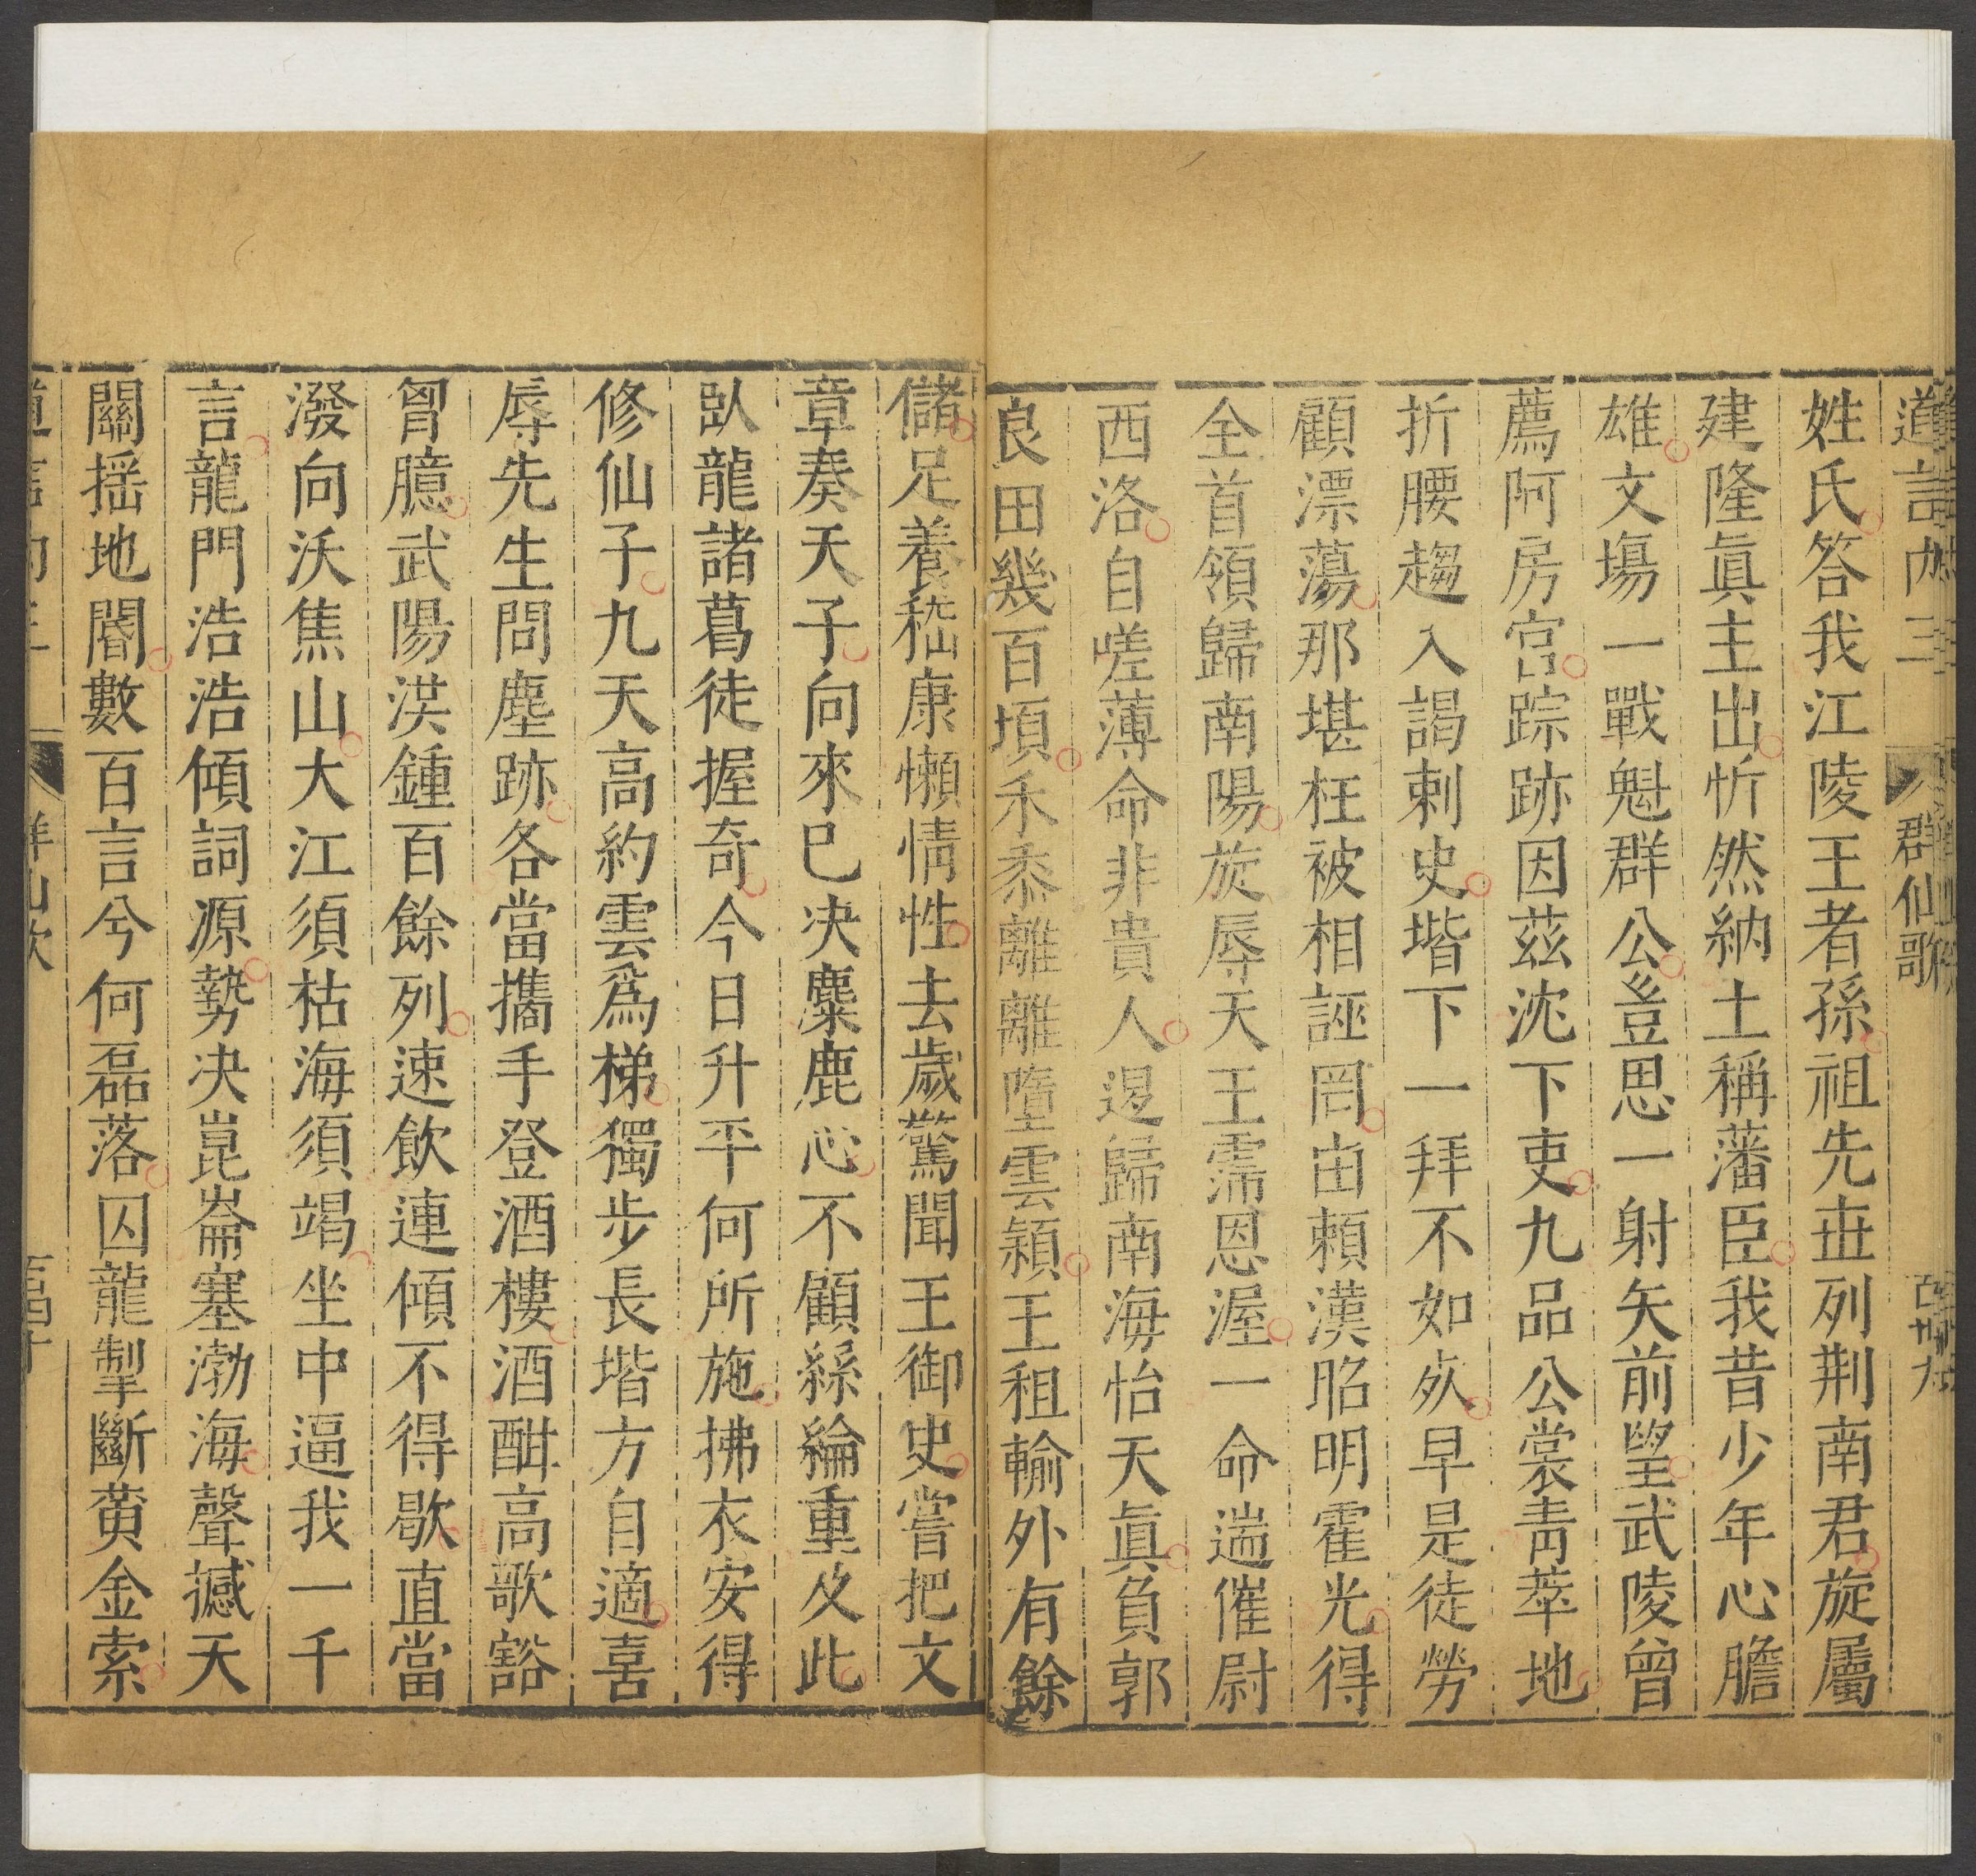 道言内三 群仙歌
姓氏答我江陵王者孫祖先世列荆南君旋屬
建隆眞主出忻然納土稱藩臣我昔少年心膽
雄文塲一戰魁群公豈思一射矢前朢武陵曾
薦阿房宫踪跡因茲沈下吏九品公裳靑蓱地
折腰趨入謁刺史堦下一拜不如死早是徒勞
顧漂蕩那堪枉被相誣罔由賴漢昭明霍光得
全首領歸南陽旋辱天王霈恩渥一命遄催尉
西洛自嗟薄命非貴人退歸南海怡天眞負郭
良田幾百頃禾黍離離墮雲穎王租輸外有餘
儲足養嵇康懶情性去歲驚聞王御史嘗把文
章奏天子向來已决麋鹿心不顧絲綸重及此
臥龍諸葛徒握奇今日升平何所施拂衣安得
修仙子九天高約雲爲梯獨步長堦方自適喜
辱先生問塵跡各當攜手登酒樓酒酣高歌豁
胷臆武陽淇鍾百餘列速飲連傾不得歇直當
潑向沃焦山大江須枯海須竭坐中逼我一千
言龍門浩浩傾詞源勢决崑崙塞渤海聲撼天
關揺地閽數百言兮何磊落囚龍掣斷黄金索